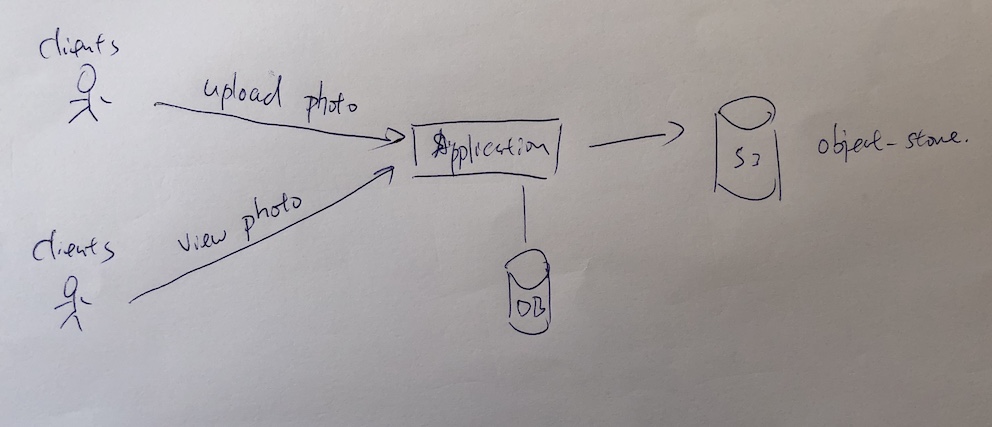 clients
upload photo
Application
S3
object-store.
clients
view photo
DB